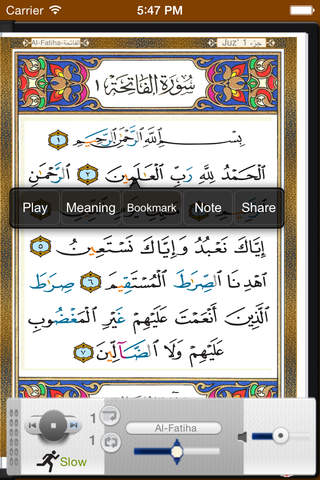 Carrier 5:47 PM
Al-Fatiha-الفاتحة Juz' 1 جزء
سُورَةُ الفَاتِحَةِ ١
بِسۡمِ ٱللَّهِ ٱلرَّحۡمَٰنِ ٱلرَّحِيمِ ١
ٱلۡحَمۡدُ لِلَّهِ رَبِّ ٱلۡعَٰلَمِينَ ٢ ٱلرَّحۡمَٰنِ
Play Meaning Bookmark Note Share
إِيَّاكَ نَعۡبُدُ وَإِيَّاكَ نَسۡتَعِينُ ٥
ٱهۡدِنَا ٱلصِّرَٰطَ ٱلۡمُسۡتَقِيمَ ٦ صِرَٰطَ
ٱلَّذِينَ أَنۡعَمۡتَ عَلَيۡهِمۡ غَيۡرِ ٱلۡمَغۡضُوبِ
عَلَيۡهِمۡ وَلَا ٱلضَّآلِّينَ ٧
1
Al-Fatiha
1
Slow